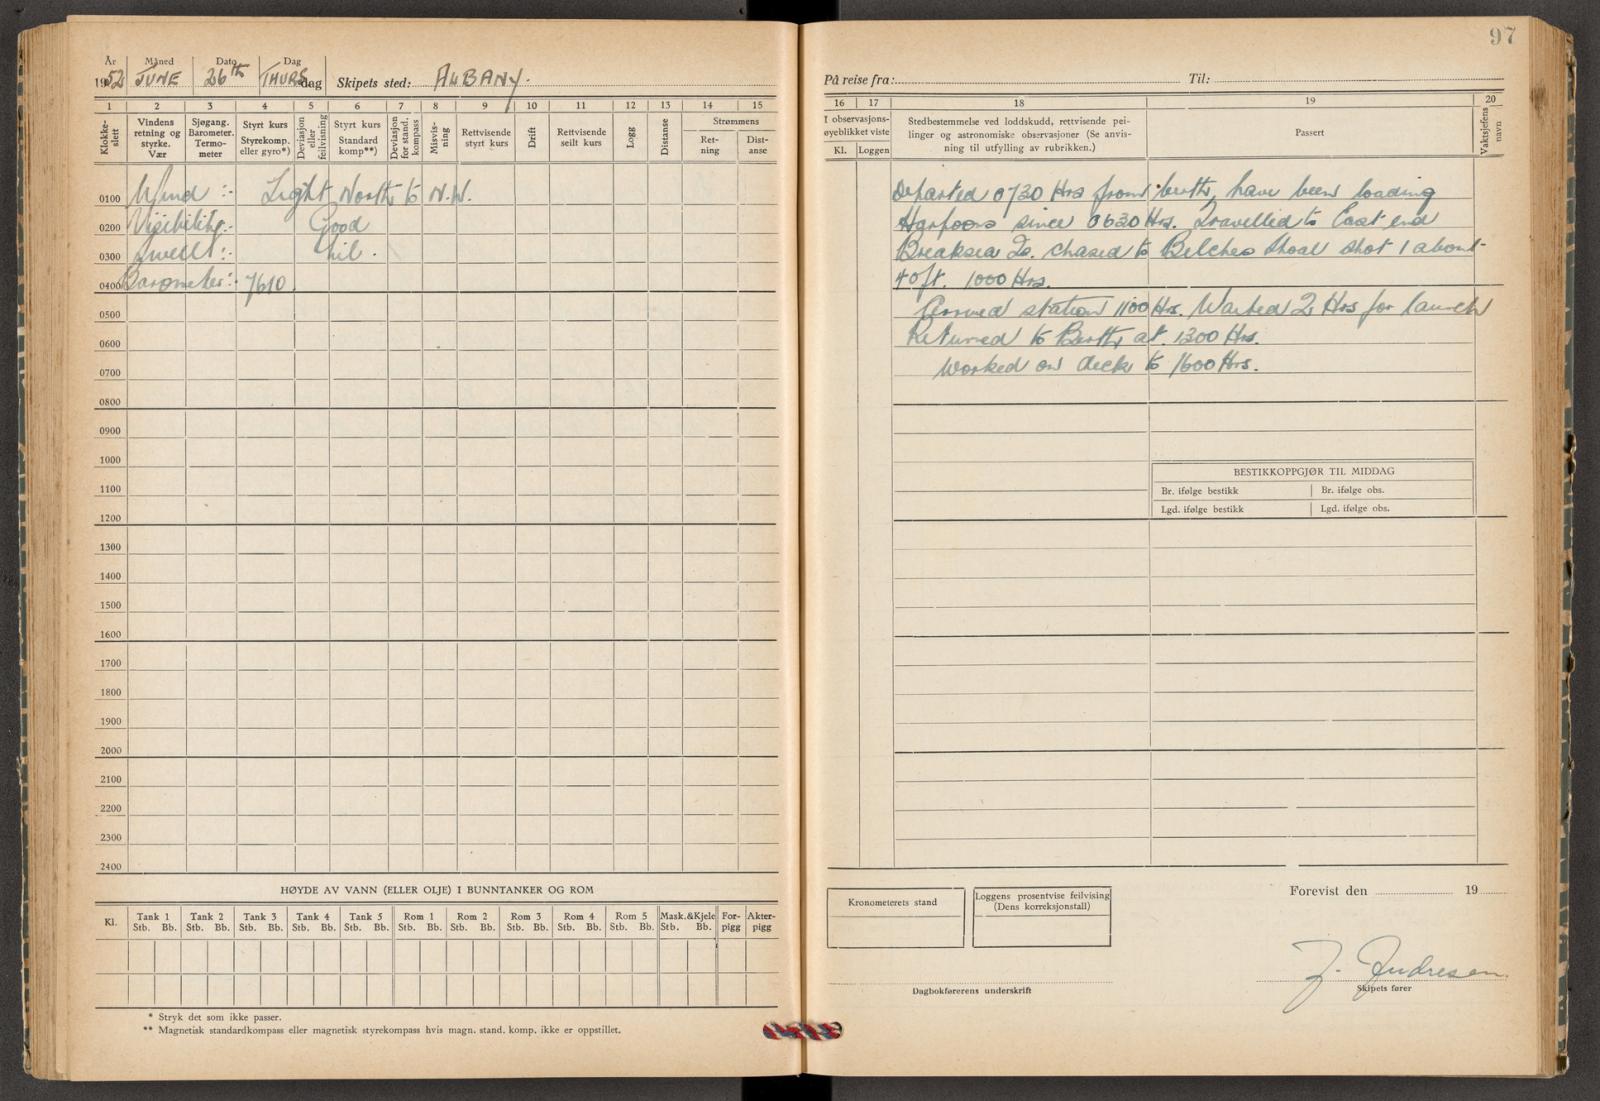 97
År Måned Dato Dag
1952 JUNE 26th THURSdag Skipets sted: ALBANY.
1 2 3 4 5 6 7 8 9 10 11 12 13 14 15
Klokke-slett
Vindens retning og styrke. Vær
Sjøgang. Barometer. Termo-meter
Styrt kurs Styrekomp. eller gyro*)
Deviasjon eller feilvisning
Styrt kurs Standard komp**)
Deviasjon for stand. kompass
Misvis-ning
Rettvisende styrt kurs
Drift
Rettvisende seilt kurs
Logg
Distanse
Strømmens
Ret-ning
Dist-anse
0100 Wind :- Light North to N.W.
0200 Visibility:- Good
0300 Swell:- Nil.
0400 Barometer:- 7610
0500
0600
0700
0800
0900
1000
1100
1200
1300
1400
1500
1600
1700
1800
1900
2000
2100
2200
2300
2400
HØYDE AV VANN (ELLER OLJE) I BUNNTANKER OG ROM
Kl. Tank 1 Tank 2 Tank 3 Tank 4 Tank 5 Rom 1 Rom 2 Rom 3 Rom 4 Rom 5 Mask.&Kjele For-pigg Akter-pigg
Stb. Bb. Stb. Bb. Stb. Bb. Stb. Bb. Stb. Bb. Stb. Bb. Stb. Bb. Stb. Bb. Stb. Bb. Stb. Bb. Stb. Bb.
* Stryk det som ikke passer.
** Magnetisk standardkompass eller magnetisk styrekompass hvis magn. stand. komp. ikke er oppstillet.
På reise fra: Til:
16 17 18 19 20
I observasjons-
øyeblikket viste
Kl. Loggen
Stedbestemmelse ved loddskudd, rettvisende pei-
linger og astronomiske observasjoner (Se anvis-
ning til utfylling av rubrikken.)
Passert
Vaktsjefens navn
Departed 0730 Hrs from berth, have been loading
Harpoons since 0630 Hrs. Travelled to East end
Breaksea Is. chased to Belches Shoal shot 1 about
40ft. 1000 Hrs.
Arrived station 1100 Hrs. Waited 2 Hrs for launch
Returned to Berth at. 1300 Hrs.
Worked on deck to 1600 Hrs.
BESTIKKOPPGJØR TIL MIDDAG
Br. ifølge bestikk Br. ifølge obs.
Lgd. ifølge bestikk Lgd. ifølge obs.
Kronometerets stand
Loggens prosentvise feilvising
(Dens korreksjonstall)
Forevist den 19
Dagbokførerens underskrift
J. Andresen
Skipets fører